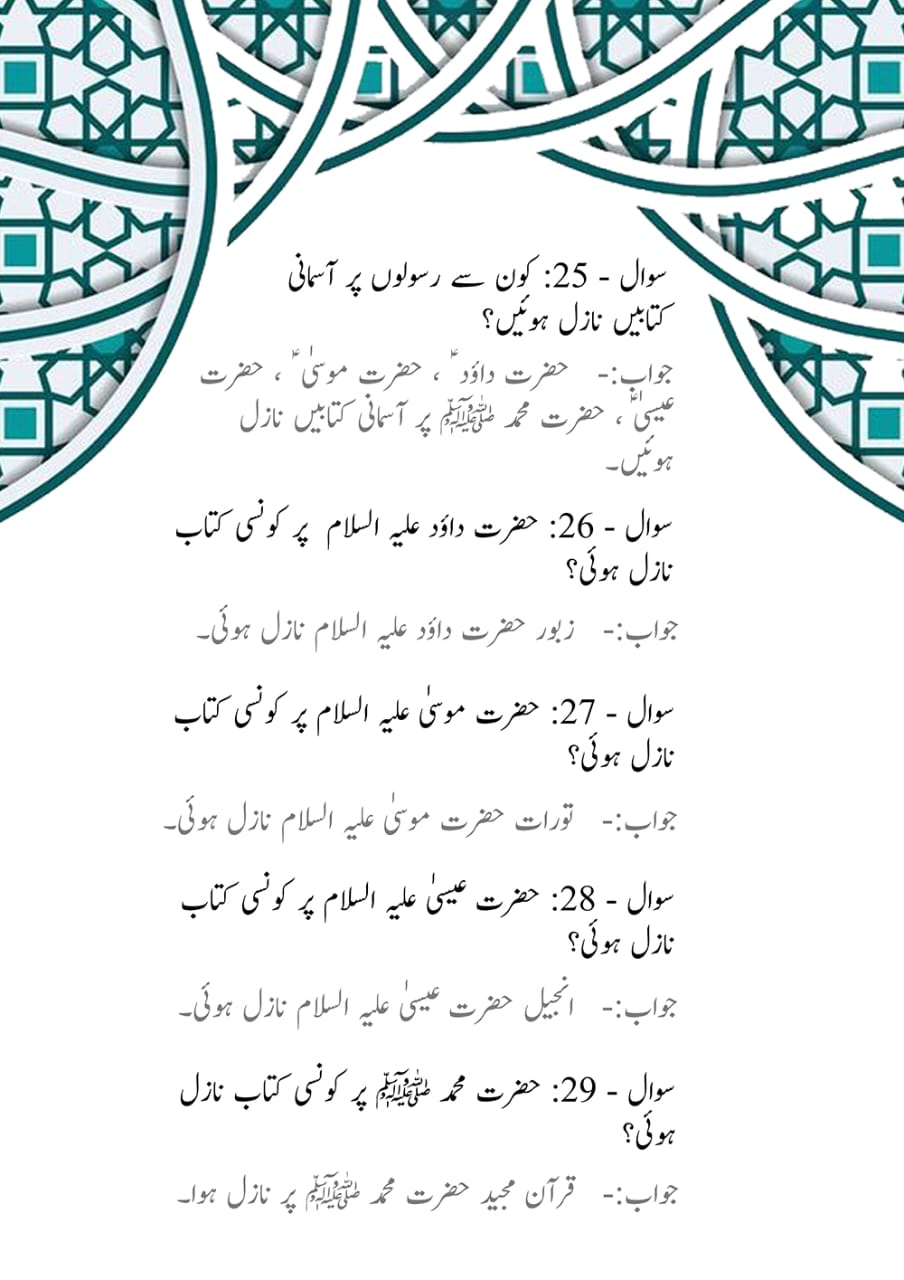 سوال - 25: کون سے رسولوں پر آسمانی
کتابیں نازل ہوئیں؟
جواب:- حضرت داؤدؑ ، حضرت موسیٰؑ ، حضرت
عیسیٰؑ ، حضرت محمد ﷺ پر آسمانی کتابیں نازل
ہوئیں۔
سوال - 26: حضرت داؤد علیہ السلام پر کونسی کتاب
نازل ہوئی؟
جواب:- زبور حضرت داؤد علیہ السلام نازل ہوئی۔
سوال - 27: حضرت موسیٰ علیہ السلام پر کونسی کتاب
نازل ہوئی؟
جواب:- تورات حضرت موسیٰ علیہ السلام نازل ہوئی۔
سوال - 28: حضرت عیسیٰ علیہ السلام پر کونسی کتاب
نازل ہوئی؟
جواب:- انجیل حضرت عیسیٰ علیہ السلام نازل ہوئی۔
سوال - 29: حضرت محمد ﷺ پر کونسی کتاب نازل
ہوئی؟
جواب:- قرآن مجید حضرت محمد ﷺ پر نازل ہوا۔